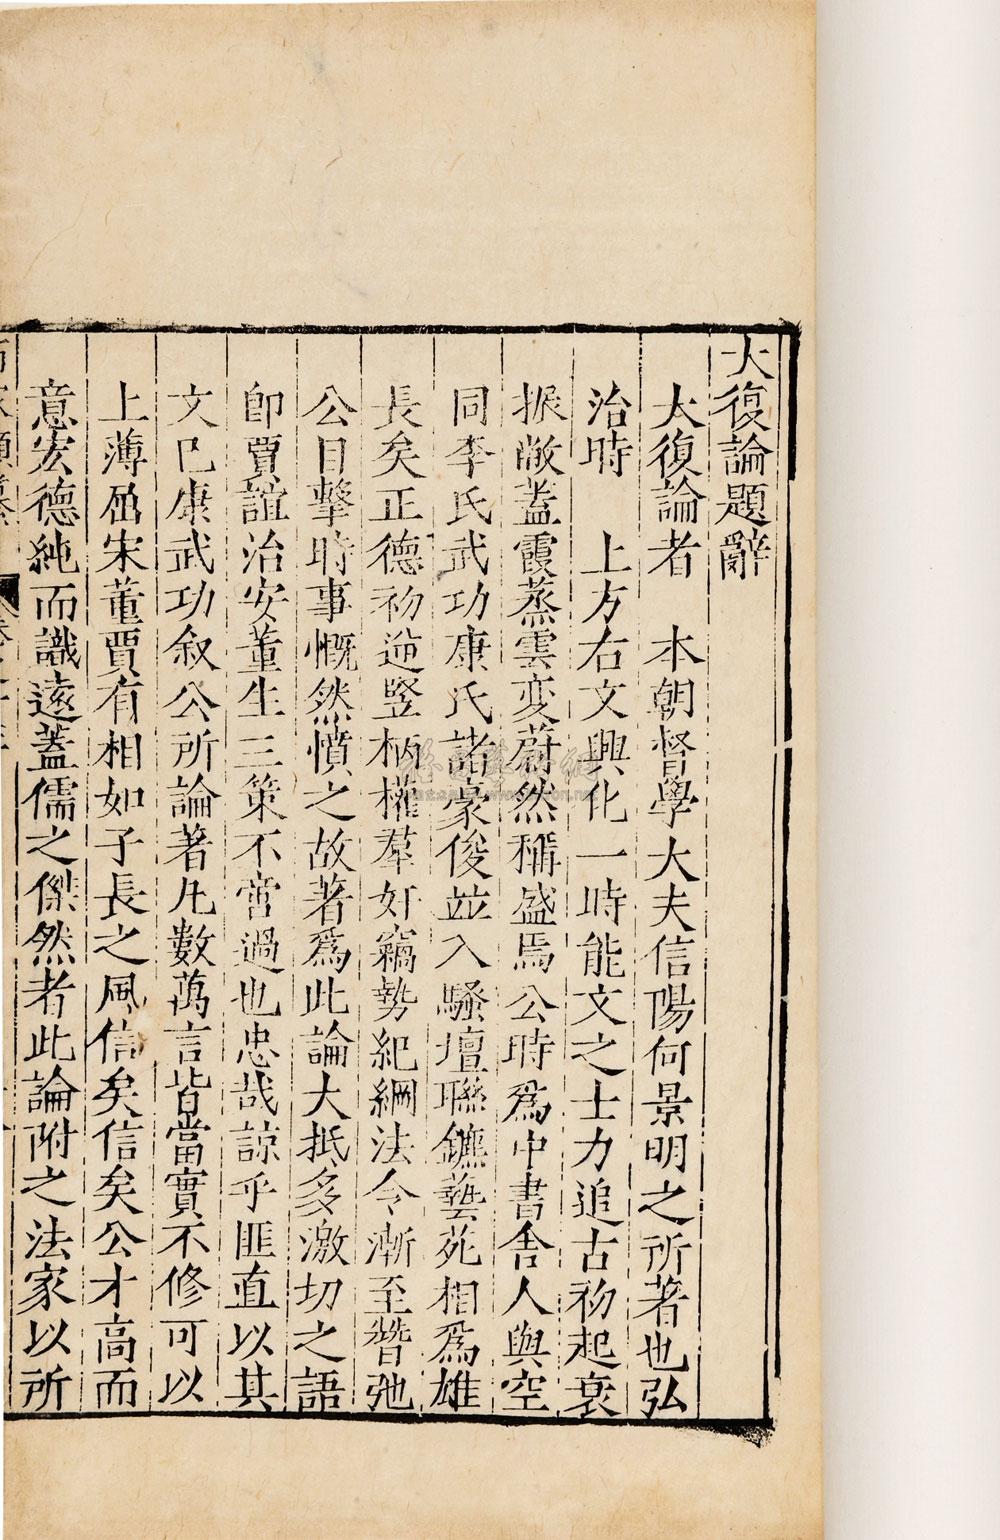 大復論題辭
大復論者 本朝督學大夫信陽何景明之所著也弘
治時 上方右文興化一時能文之士力追古初起衰
振敝蓋霞蒸雲変蔚然稱盛焉公時爲中書舍人與空
同李氏武功康氏諸豪俊並入騷壇聯鑣藝苑相爲雄
長矣正德初逆竖柄權羣奸竊勢紀綱法令漸至朁弛
公目擊時事慨然憤之故著爲此論大抵多激切之語
即賈誼治安董生三策不啻過也忠哉諒乎匪直以其
文已康武功叙公所論著凡數萬言皆當實不修可以
上薄屈宋董賈有相如子長之風信矣信矣公才高而
意宏德純而識遠蓋儒之傑然者此論附之法家以所